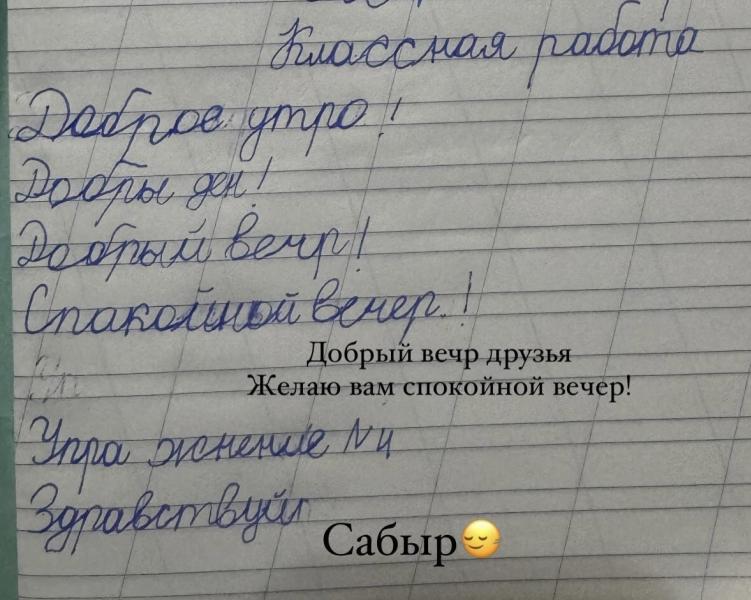 Классная работа
Доброе утро!
Добры ден!
Добрый вечр!
Спакойной вечер!
Добрый вечр друзья
Желаю вам спокойной вечер!
Упра жнение №4
Здравствуй
Сабыр😌